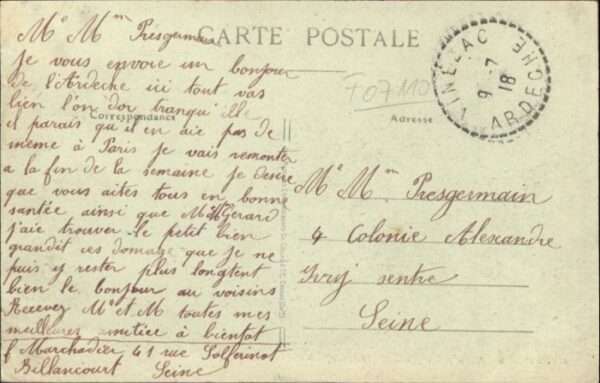 CARTE POSTALE
Correspondance
Adresse
F07110
VINEZAC
9-7
18
ARDECHE
Mr Mme Presgermain
je vous envoie un bonjour
de l'Ardeche ici tout vas
bien l'on dor tranquille
il parais qu'il en aie pas de
même à Paris je vais remonter
a la fin de la semaine je desire
que vous aites tous en bonne
santée ainsi que Gerard
j'aie trouver le petit bien
grandit ces domage que je ne
puis y rester plus longtent
bien le bonjour au voisins
Recevez Mr et M toutes mes
meilleures amitiée à bientot
Marchadier 41 rue Solferinot
Billancourt Seine
Mr Mme Presgermain
4 Colonie Alexandre
Ivry sentre
Seine